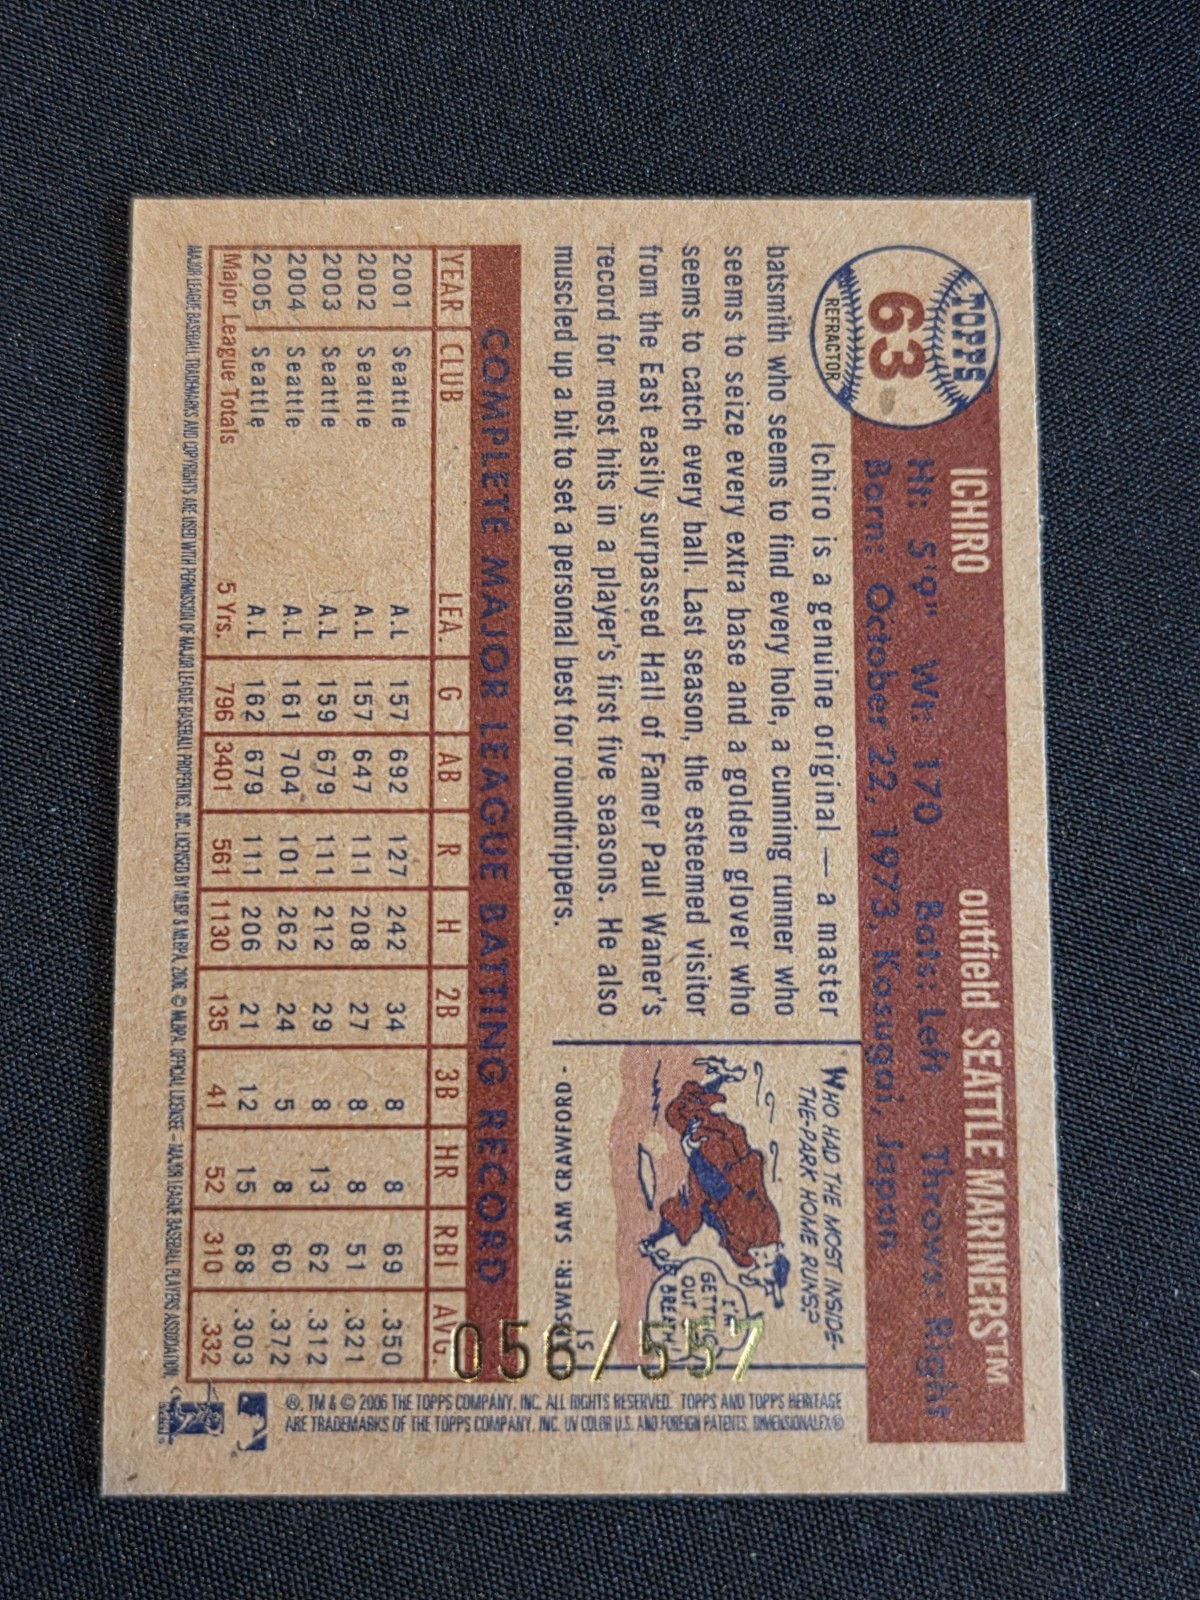 TOPPS
63
REFRACTOR
ICHIRO outfield SEATTLE MARINERS™
Ht: 5'9" Wt: 170 Bats: Left Throws: Right
Born: October 22, 1973, Kasugai, Japan
Ichiro is a genuine original — a master
batsmith who seems to find every hole, a cunning runner who
seems to seize every extra base and a golden glover who
seems to catch every ball. Last season, the esteemed visitor
from the East easily surpassed Hall of Famer Paul Waner's
record for most hits in a player's first five seasons. He also
muscled up a bit to set a personal best for roundtrippers.
WHO HAD THE MOST INSIDE-
THE-PARK HOME RUNS?
I'M
GETTING
OUT OF
BREATH!
ANSWER: SAM CRAWFORD -
51
056/557
COMPLETE MAJOR LEAGUE BATTING RECORD
YEAR CLUB LEA. G AB R H 2B 3B HR RBI AVG.
2001 Seattle A.L 157 692 127 242 34 8 8 69 .350
2002 Seattle A.L 157 647 111 208 27 8 8 51 .321
2003 Seattle A.L 159 679 111 212 29 8 13 62 .312
2004 Seattle A.L 161 704 101 262 24 5 8 60 .372
2005 Seattle A.L 162 679 111 206 21 12 15 68 .303
Major League Totals 5 Yrs. 796 3401 561 1130 135 41 52 310 .332
MAJOR LEAGUE BASEBALL TRADEMARKS AND COPYRIGHTS ARE USED WITH PERMISSION OF MAJOR LEAGUE BASEBALL PROPERTIES, INC. LICENSED BY MLBP & MLBPA, 2006. © MLBPA. OFFICIAL LICENSEE – MAJOR LEAGUE BASEBALL PLAYERS ASSOCIATION.
®, TM & © 2006 THE TOPPS COMPANY, INC. ALL RIGHTS RESERVED. TOPPS AND TOPPS HERITAGE
ARE TRADEMARKS OF THE TOPPS COMPANY, INC. UV COLOR U.S. AND FOREIGN PATENTS. DIMENSIONALFX®